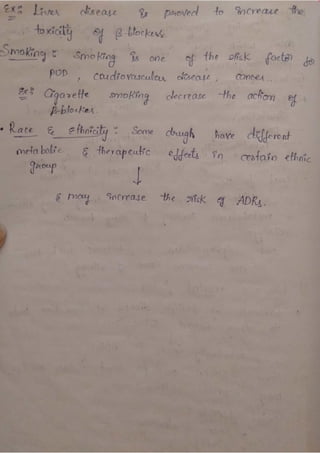 Ex:- Liver disease is proved to increase the
toxicity of β blockers.
Smoking :- Smoking is one of the risk factor for
PUD, Cardiovascular disease, cancer.
Ex:- Cigarette smoking decrease the action of
β-blocker.
• Race & ethnicity :- Some drugh have different
metabolic & therapeutic effects in certain ethnic
group
↓
& may increase the risk of ADRs.